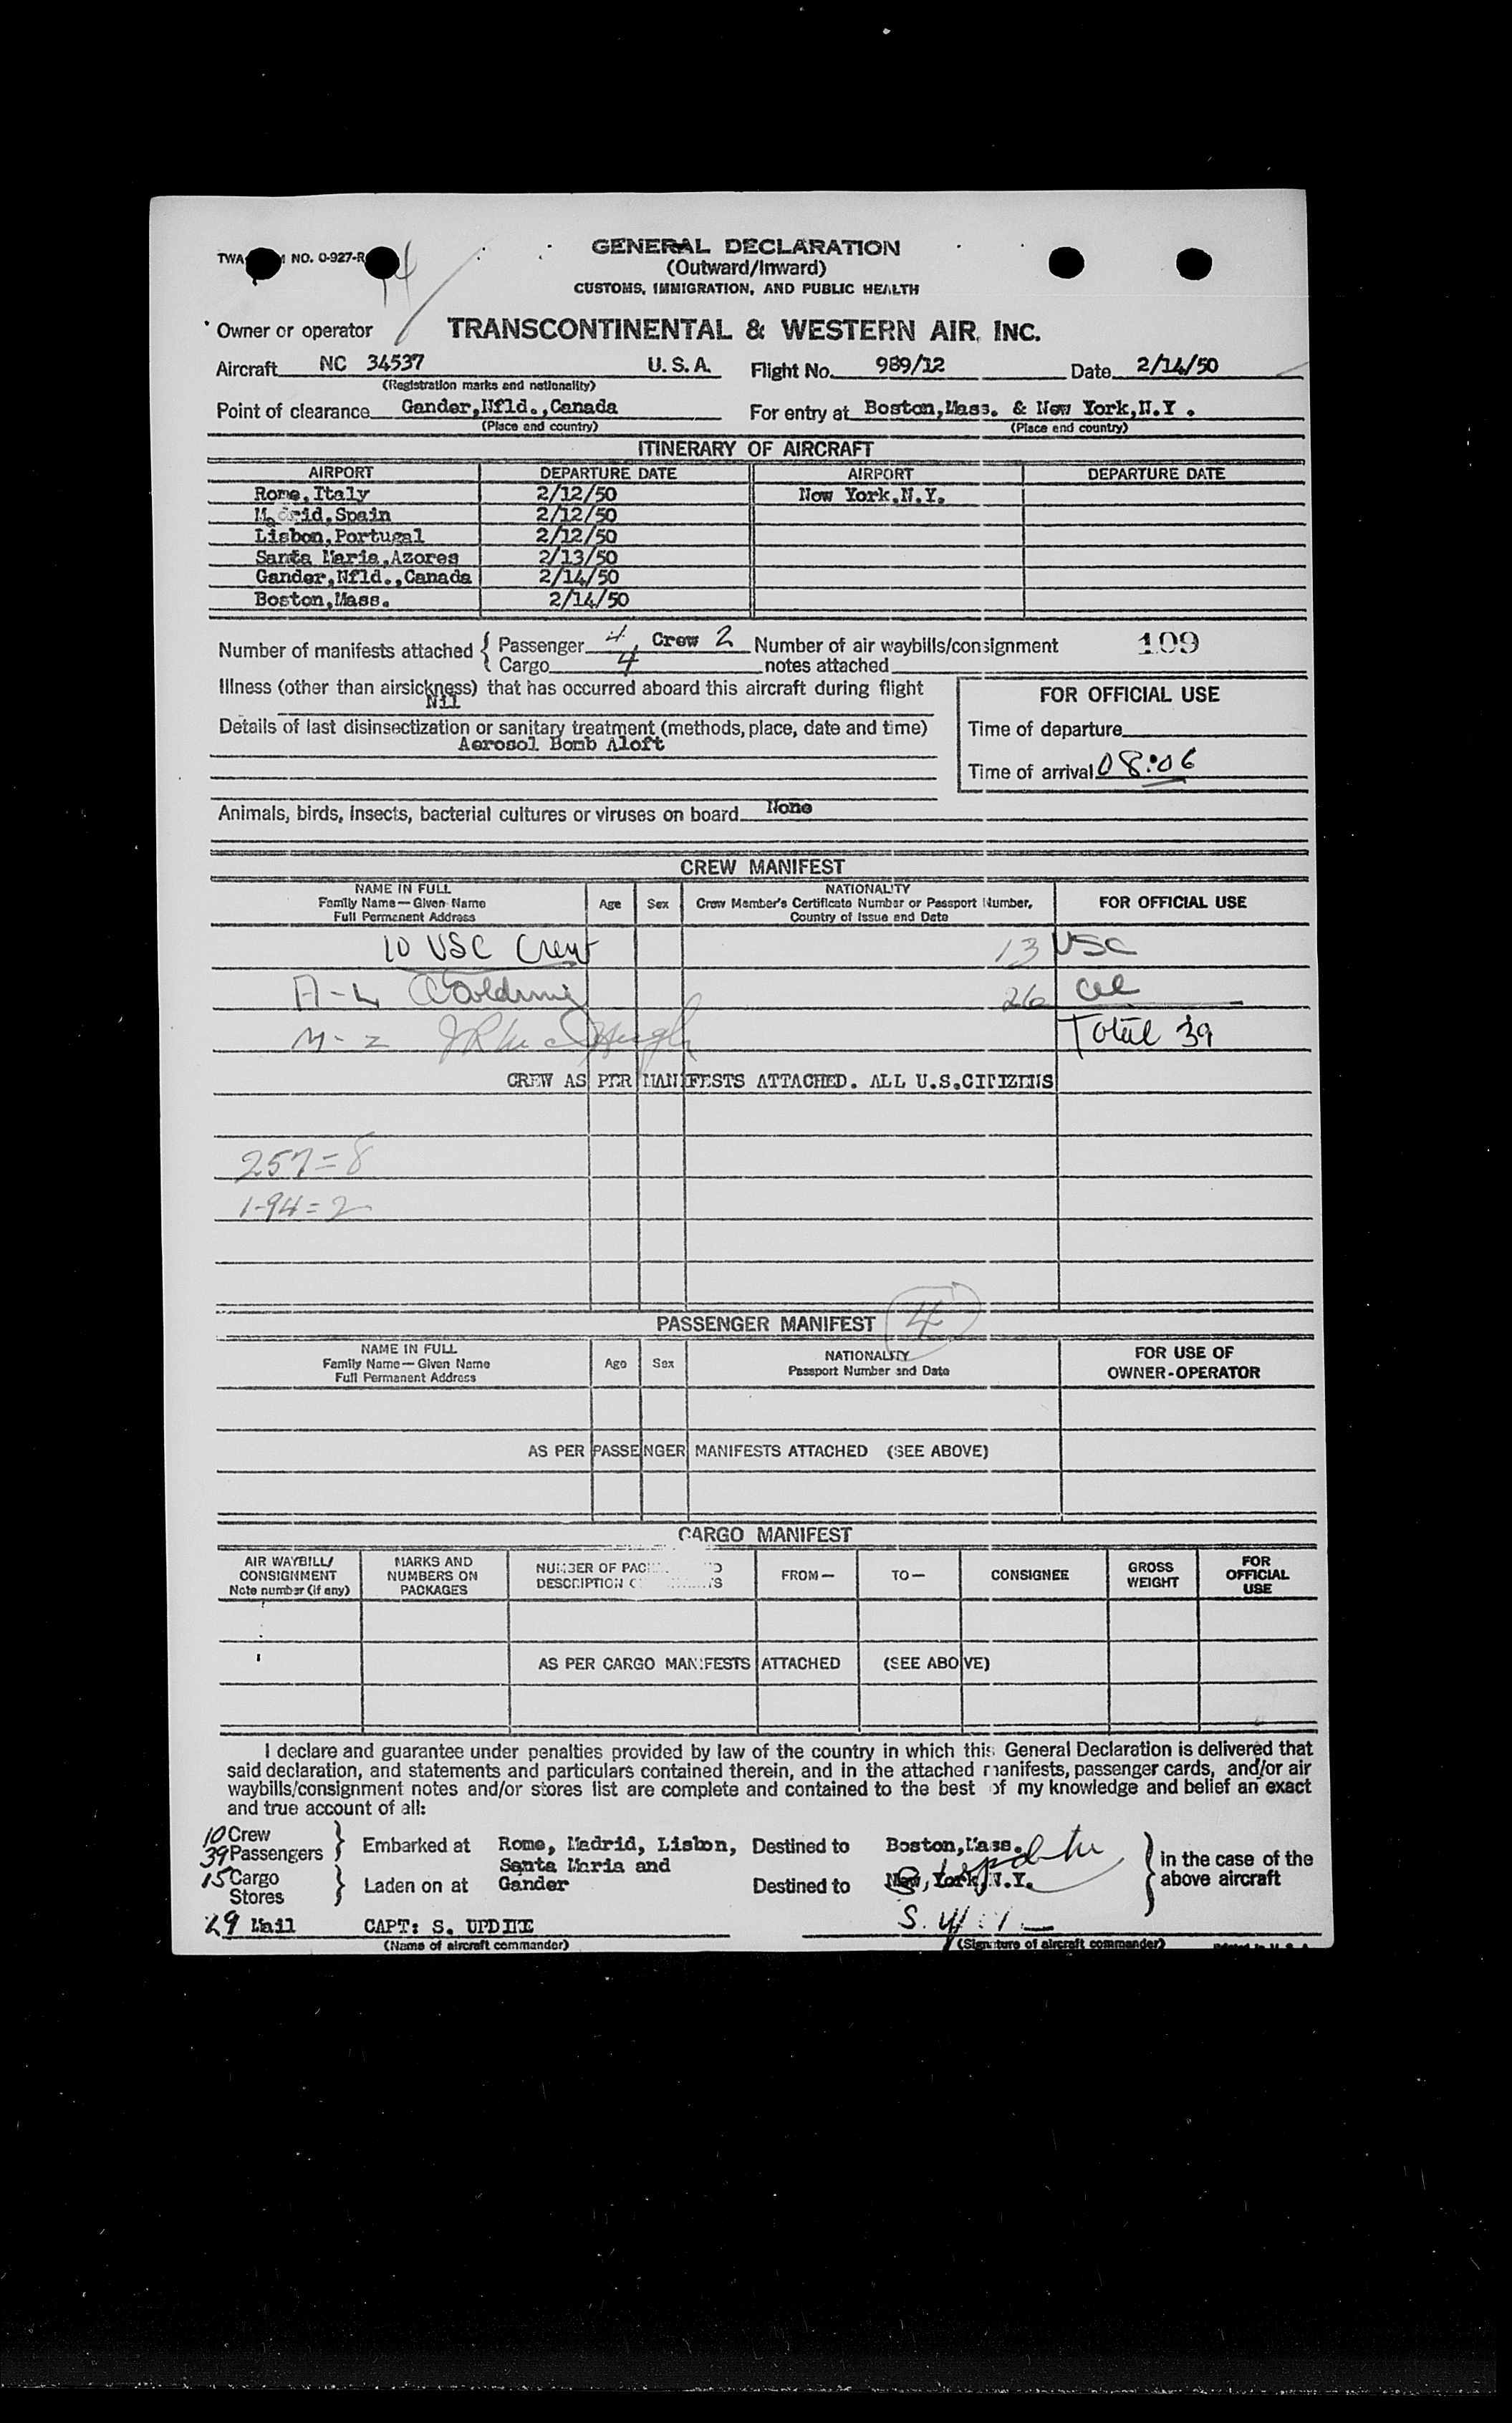 GENERAL DECLARATION
(Outward/Inward)
CUSTOMS, IMMIGRATION, AND PUBLIC HEALTH
TWA NO. O-927-R
Owner or operator TRANSCONTINENTAL & WESTERN AIR, INC.
Aircraft NC 34537 U.S.A. Flight No. 989/12 Date 2/14/50
(Registration marks and nationality)
Point of clearance Gander,Nfld.,Canada For entry at Boston,Mass. & New York,N.Y.
(Place and country) (Place and country)
ITINERARY OF AIRCRAFT
AIRPORT DEPARTURE DATE AIRPORT DEPARTURE DATE
Rome,Italy 2/12/50 New York,N.Y.
Madrid,Spain 2/12/50
Lisbon,Portugal 2/12/50
Santa Maria,Azores 2/13/50
Gander,Nfld.,Canada 2/14/50
Boston,Mass. 2/14/50
Number of manifests attached { Passenger 4 Crew 2 Number of air waybills/consignment 109
Cargo 4 notes attached
Illness (other than airsickness) that has occurred aboard this aircraft during flight
Nil
FOR OFFICIAL USE
Details of last disinsectization or sanitary treatment (methods, place, date and time)
Aerosol Bomb Aloft
Time of departure
Time of arrival 08:06
Animals, birds, insects, bacterial cultures or viruses on board None
CREW MANIFEST
NAME IN FULL
Family Name—Given Name
Full Permanent Address
Age Sex
NATIONALITY
Crew Member's Certificate Number or Passport Number,
Country of Issue and Date
FOR OFFICIAL USE
10 USC Crew 13 USC
A-L 26
M-Z Total 39
CREW AS PER MANIFESTS ATTACHED. ALL U.S.CITIZENS
257=8
1-94=2
PASSENGER MANIFEST 4
NAME IN FULL
Family Name—Given Name
Full Permanent Address
Age Sex
NATIONALITY
Passport Number and Date
FOR USE OF
OWNER-OPERATOR
AS PER PASSENGER MANIFESTS ATTACHED (SEE ABOVE)
CARGO MANIFEST
AIR WAYBILL/
CONSIGNMENT
Note number (if any)
MARKS AND
NUMBERS ON
PACKAGES
NUMBER OF
DESCRIPTION
FROM—
TO—
CONSIGNEE
GROSS
WEIGHT
FOR
OFFICIAL
USE
AS PER CARGO MANIFESTS ATTACHED (SEE ABOVE)
I declare and guarantee under penalties provided by law of the country in which this General Declaration is delivered that
said declaration, and statements and particulars contained therein, and in the attached manifests, passenger cards, and/or air
waybills/consignment notes and/or stores list are complete and contained to the best of my knowledge and belief an exact
and true account of all:
10 Crew
39 Passengers
15 Cargo
Stores
29 Mail
Embarked at Rome, Madrid, Lisbon,
Santa Maria and
Laden on at Gander
Destined to Boston,Mass.
Destined to New, York, N.Y.
in the case of the
above aircraft
CAPT: S. UPDIKE
(Name of aircraft commander) (Signature of aircraft commander)